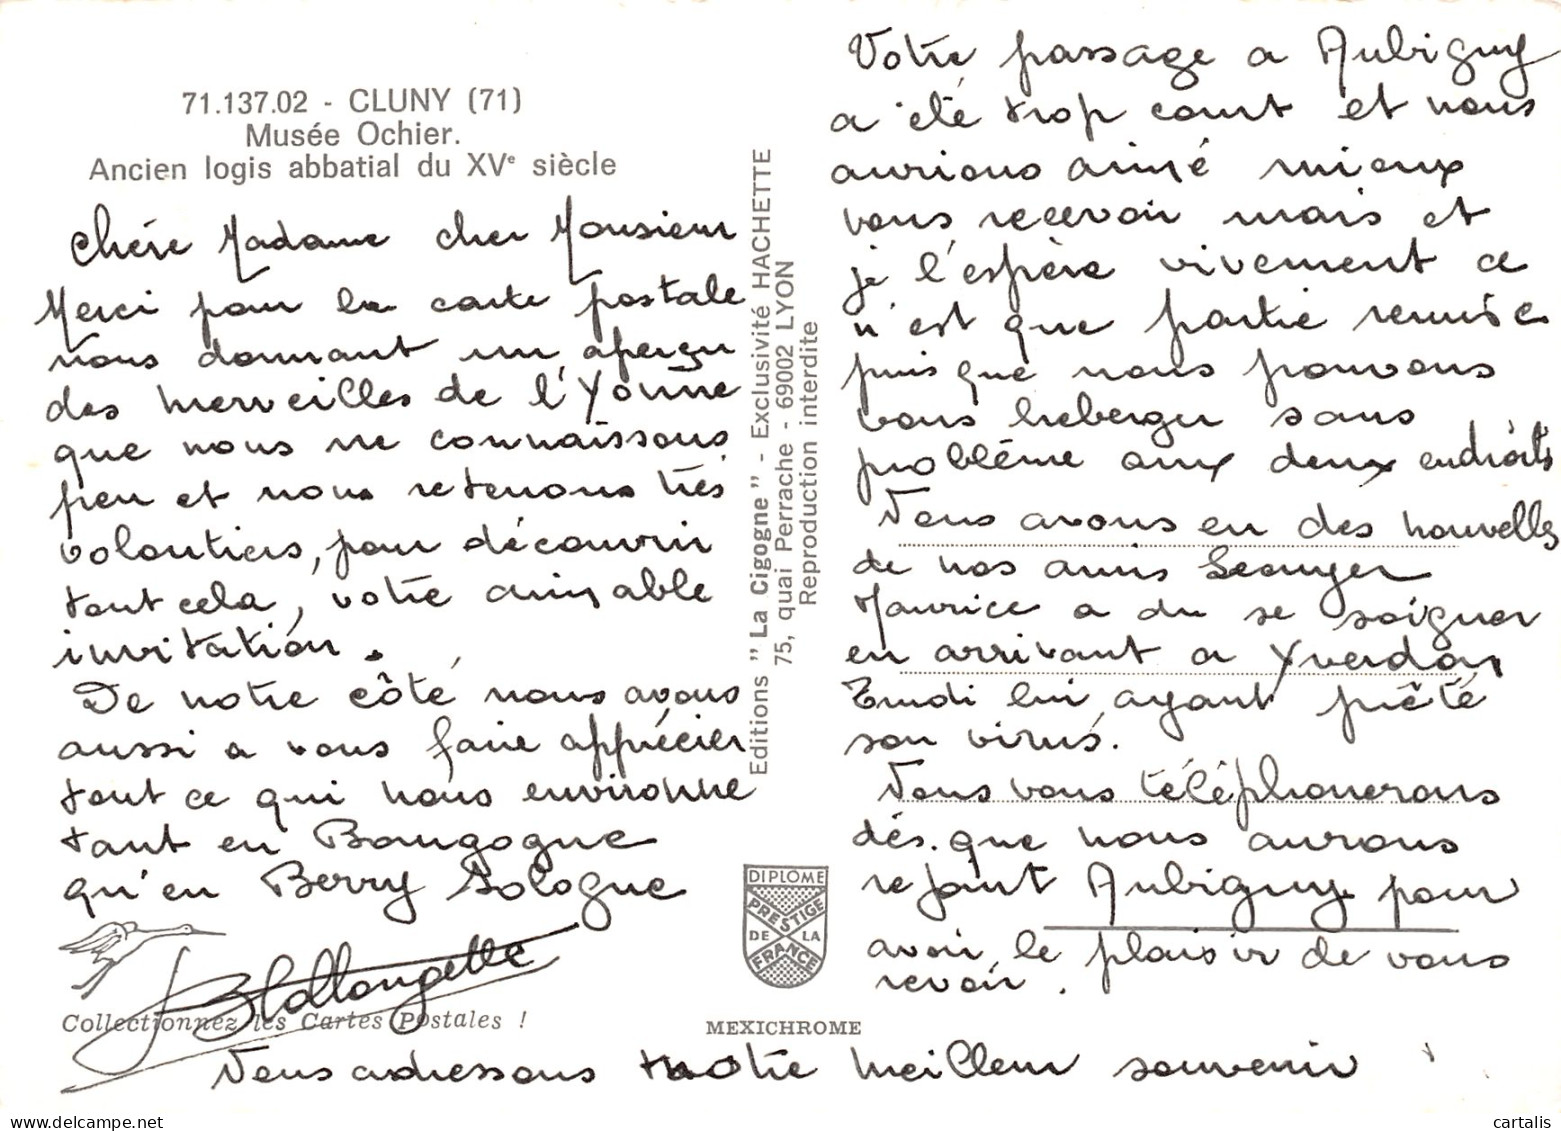 71.137.02 - CLUNY (71)
Musée Ochier.
Ancien logis abbatial du XVe siècle
Chère Madame cher Monsieur
Merci pour la carte postale
nous donnant un aperçu
des merveilles de l'Yonne
que nous ne connaissons
peu et nous retenons très
volontiers, pour découvrir
tout cela, votre aimable
invitation.
De notre côté nous avons
aussi a vous faire apprécier
tout ce qui nous environne
tant en Bourgogne
qu'en Berry Sologne
Collectionnez les Cartes Postales !
Editions " La Cigogne " - Exclusivité HACHETTE
75, quai Perrache - 69002 LYON
Reproduction interdite
DIPLOME
PRESTIGE
DE LA
FRANCE
MEXICHROME
Votre passage a Aubigny
a été trop court et nous
aurions aimé mieux
vous recevoir mais et
je l'espère vivement ce
n'est que partie remise
puis que nous pouvons
vous heberger sans
problème aux deux endroits
Nous avons eu des nouvelles
de nos amis
Maurice a du se soigner
en arrivant a Yverdon
lui ayant prêté
son virus.
Nous vous téléphonerons
dés que nous aurons
rejoint Aubigny pour
avoir le plaisir de vous
revoir.
Nous adressons notre meilleur souvenir
cartalis